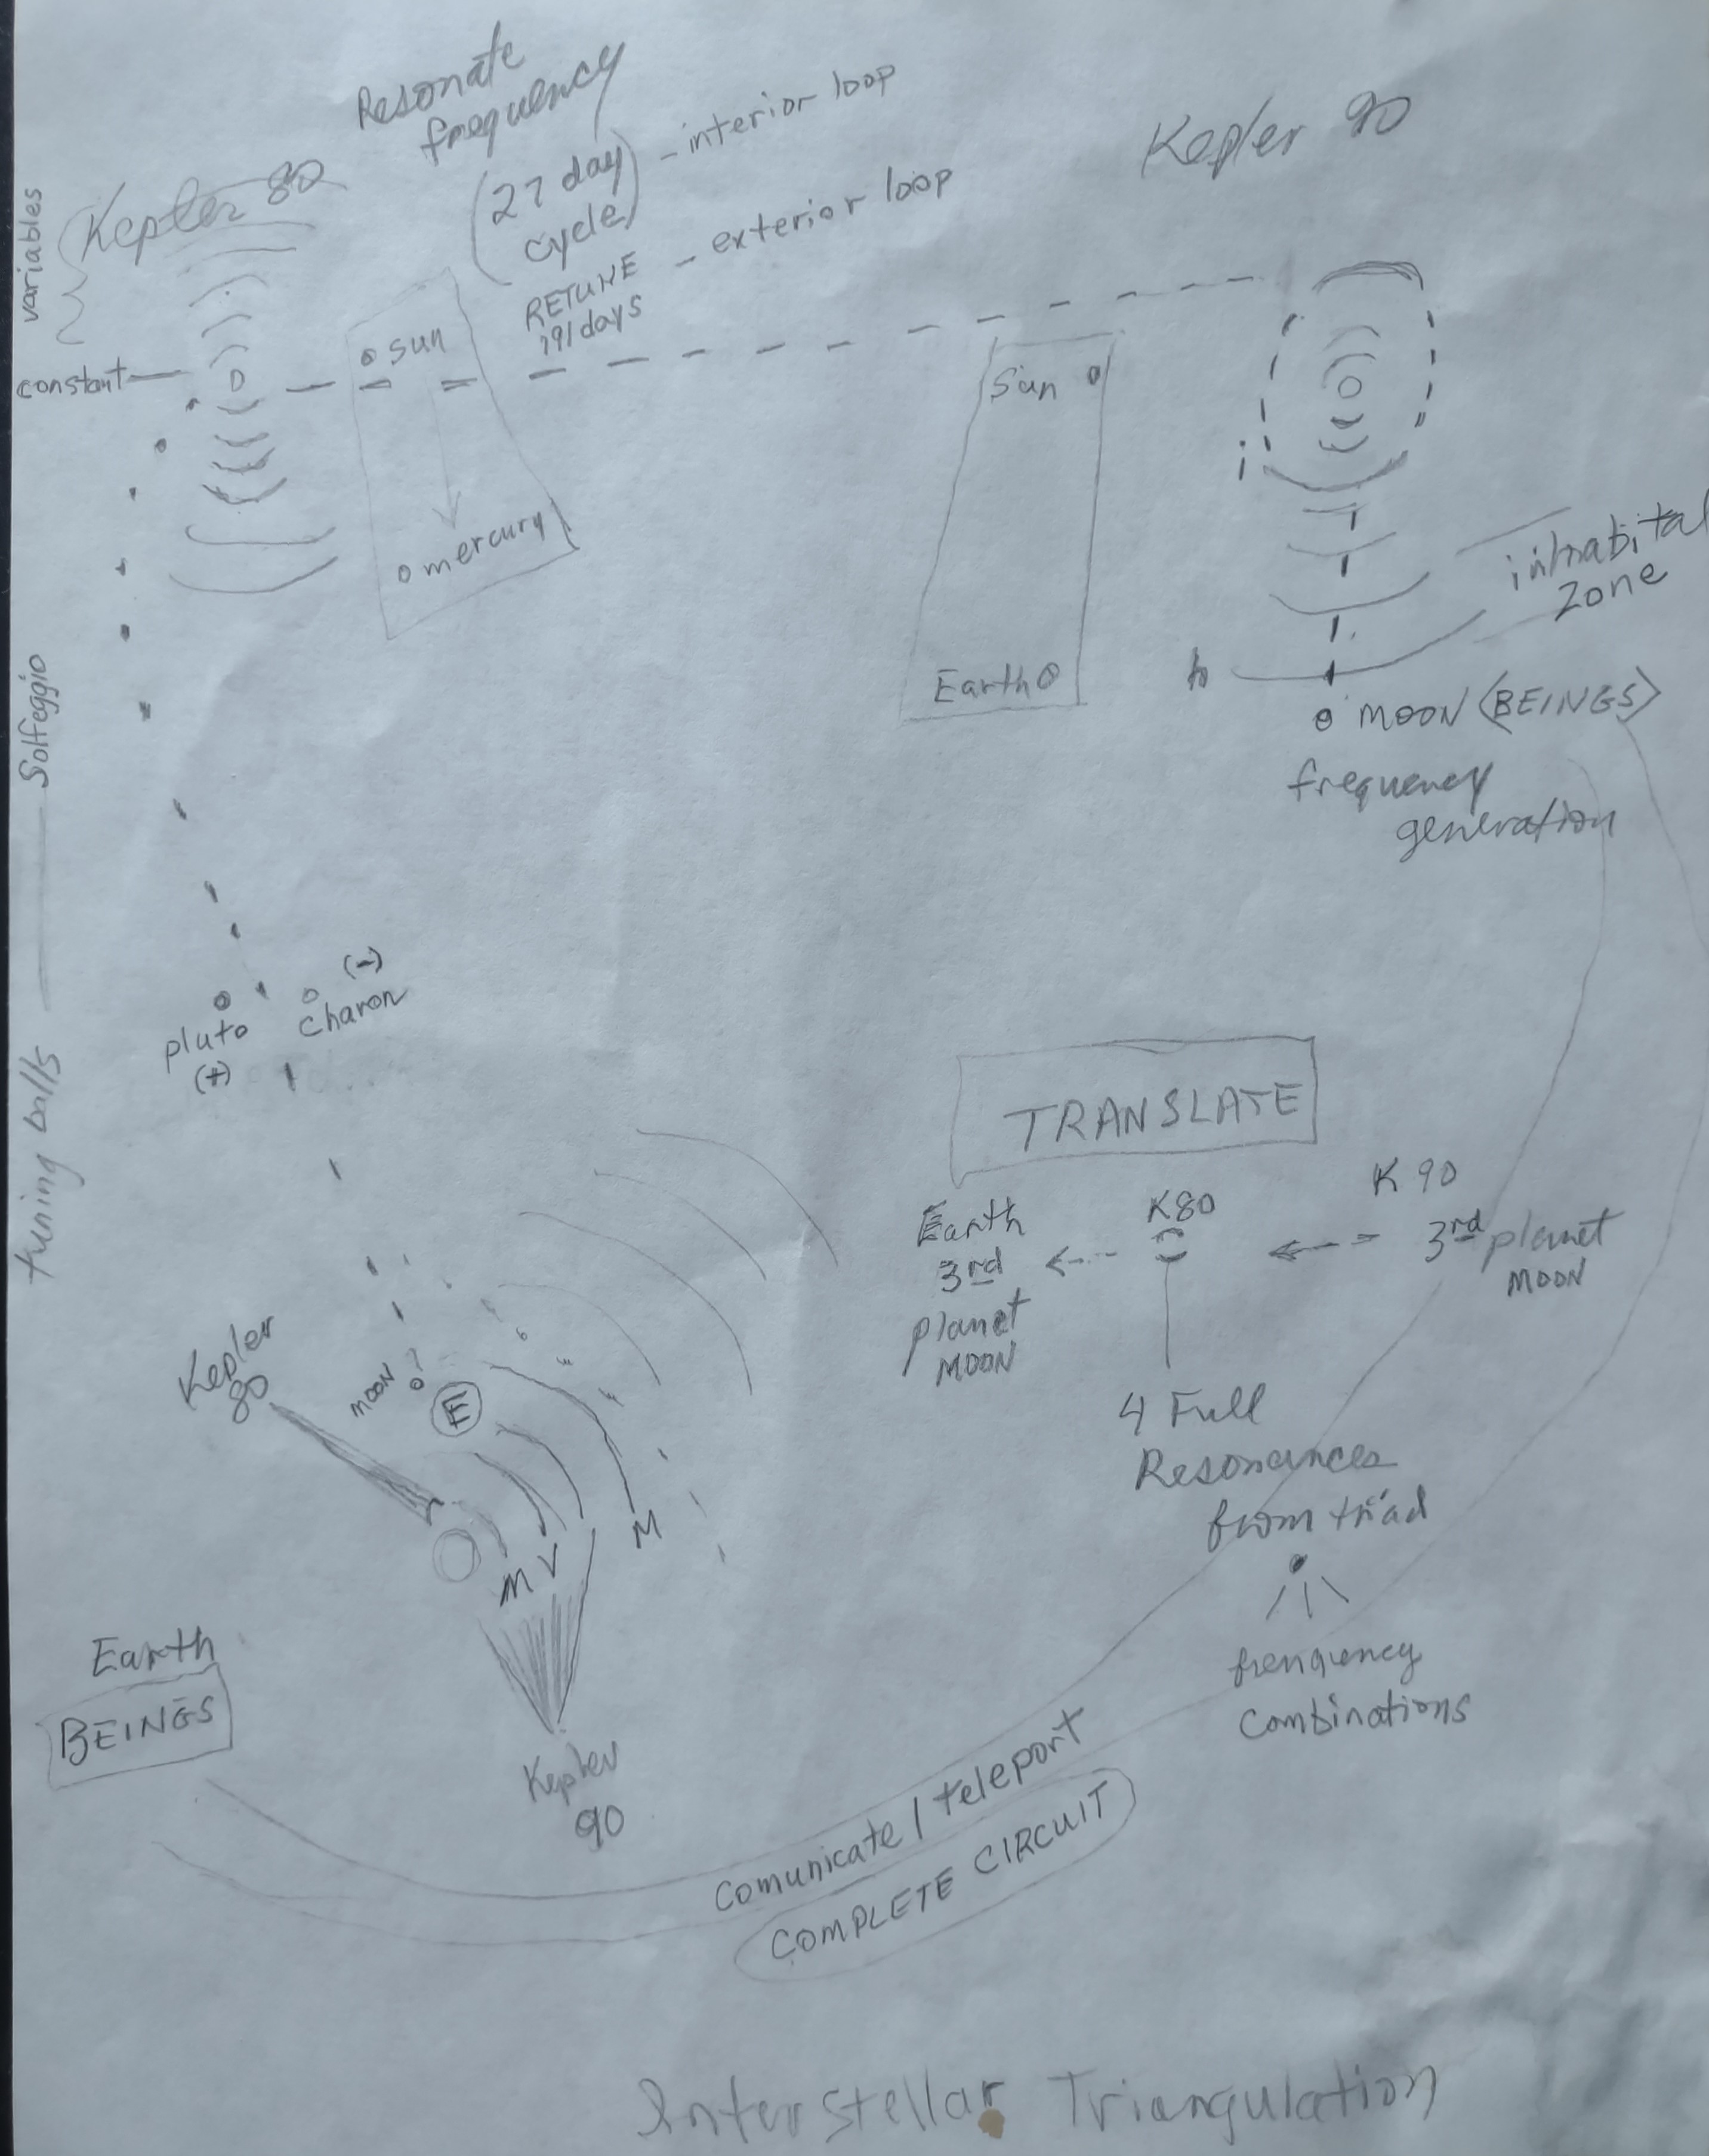 Resonate
frequency
(27 day
cycle)
- interior loop
RETUNE
191 days
- exterior loop
Kepler 80
variables
constant
sun
mercury
Kepler 90
Sun
Earth
i
h
inhabital
zone
MOON <BEINGS>
frequency
generation
tuning balls
Solfeggio
pluto
(+)
(-)
Charon
TRANSLATE
Earth
3rd
planet
MOON
K80
K 90
3rd planet
MOON
4 Full
Resonances
from triad
frenquency
Combinations
Kepler
80
MOON
E
M
V
M
Kepler
90
Earth
BEINGS
Comunicate / teleport
COMPLETE CIRCUIT
Interstellar Triangulation